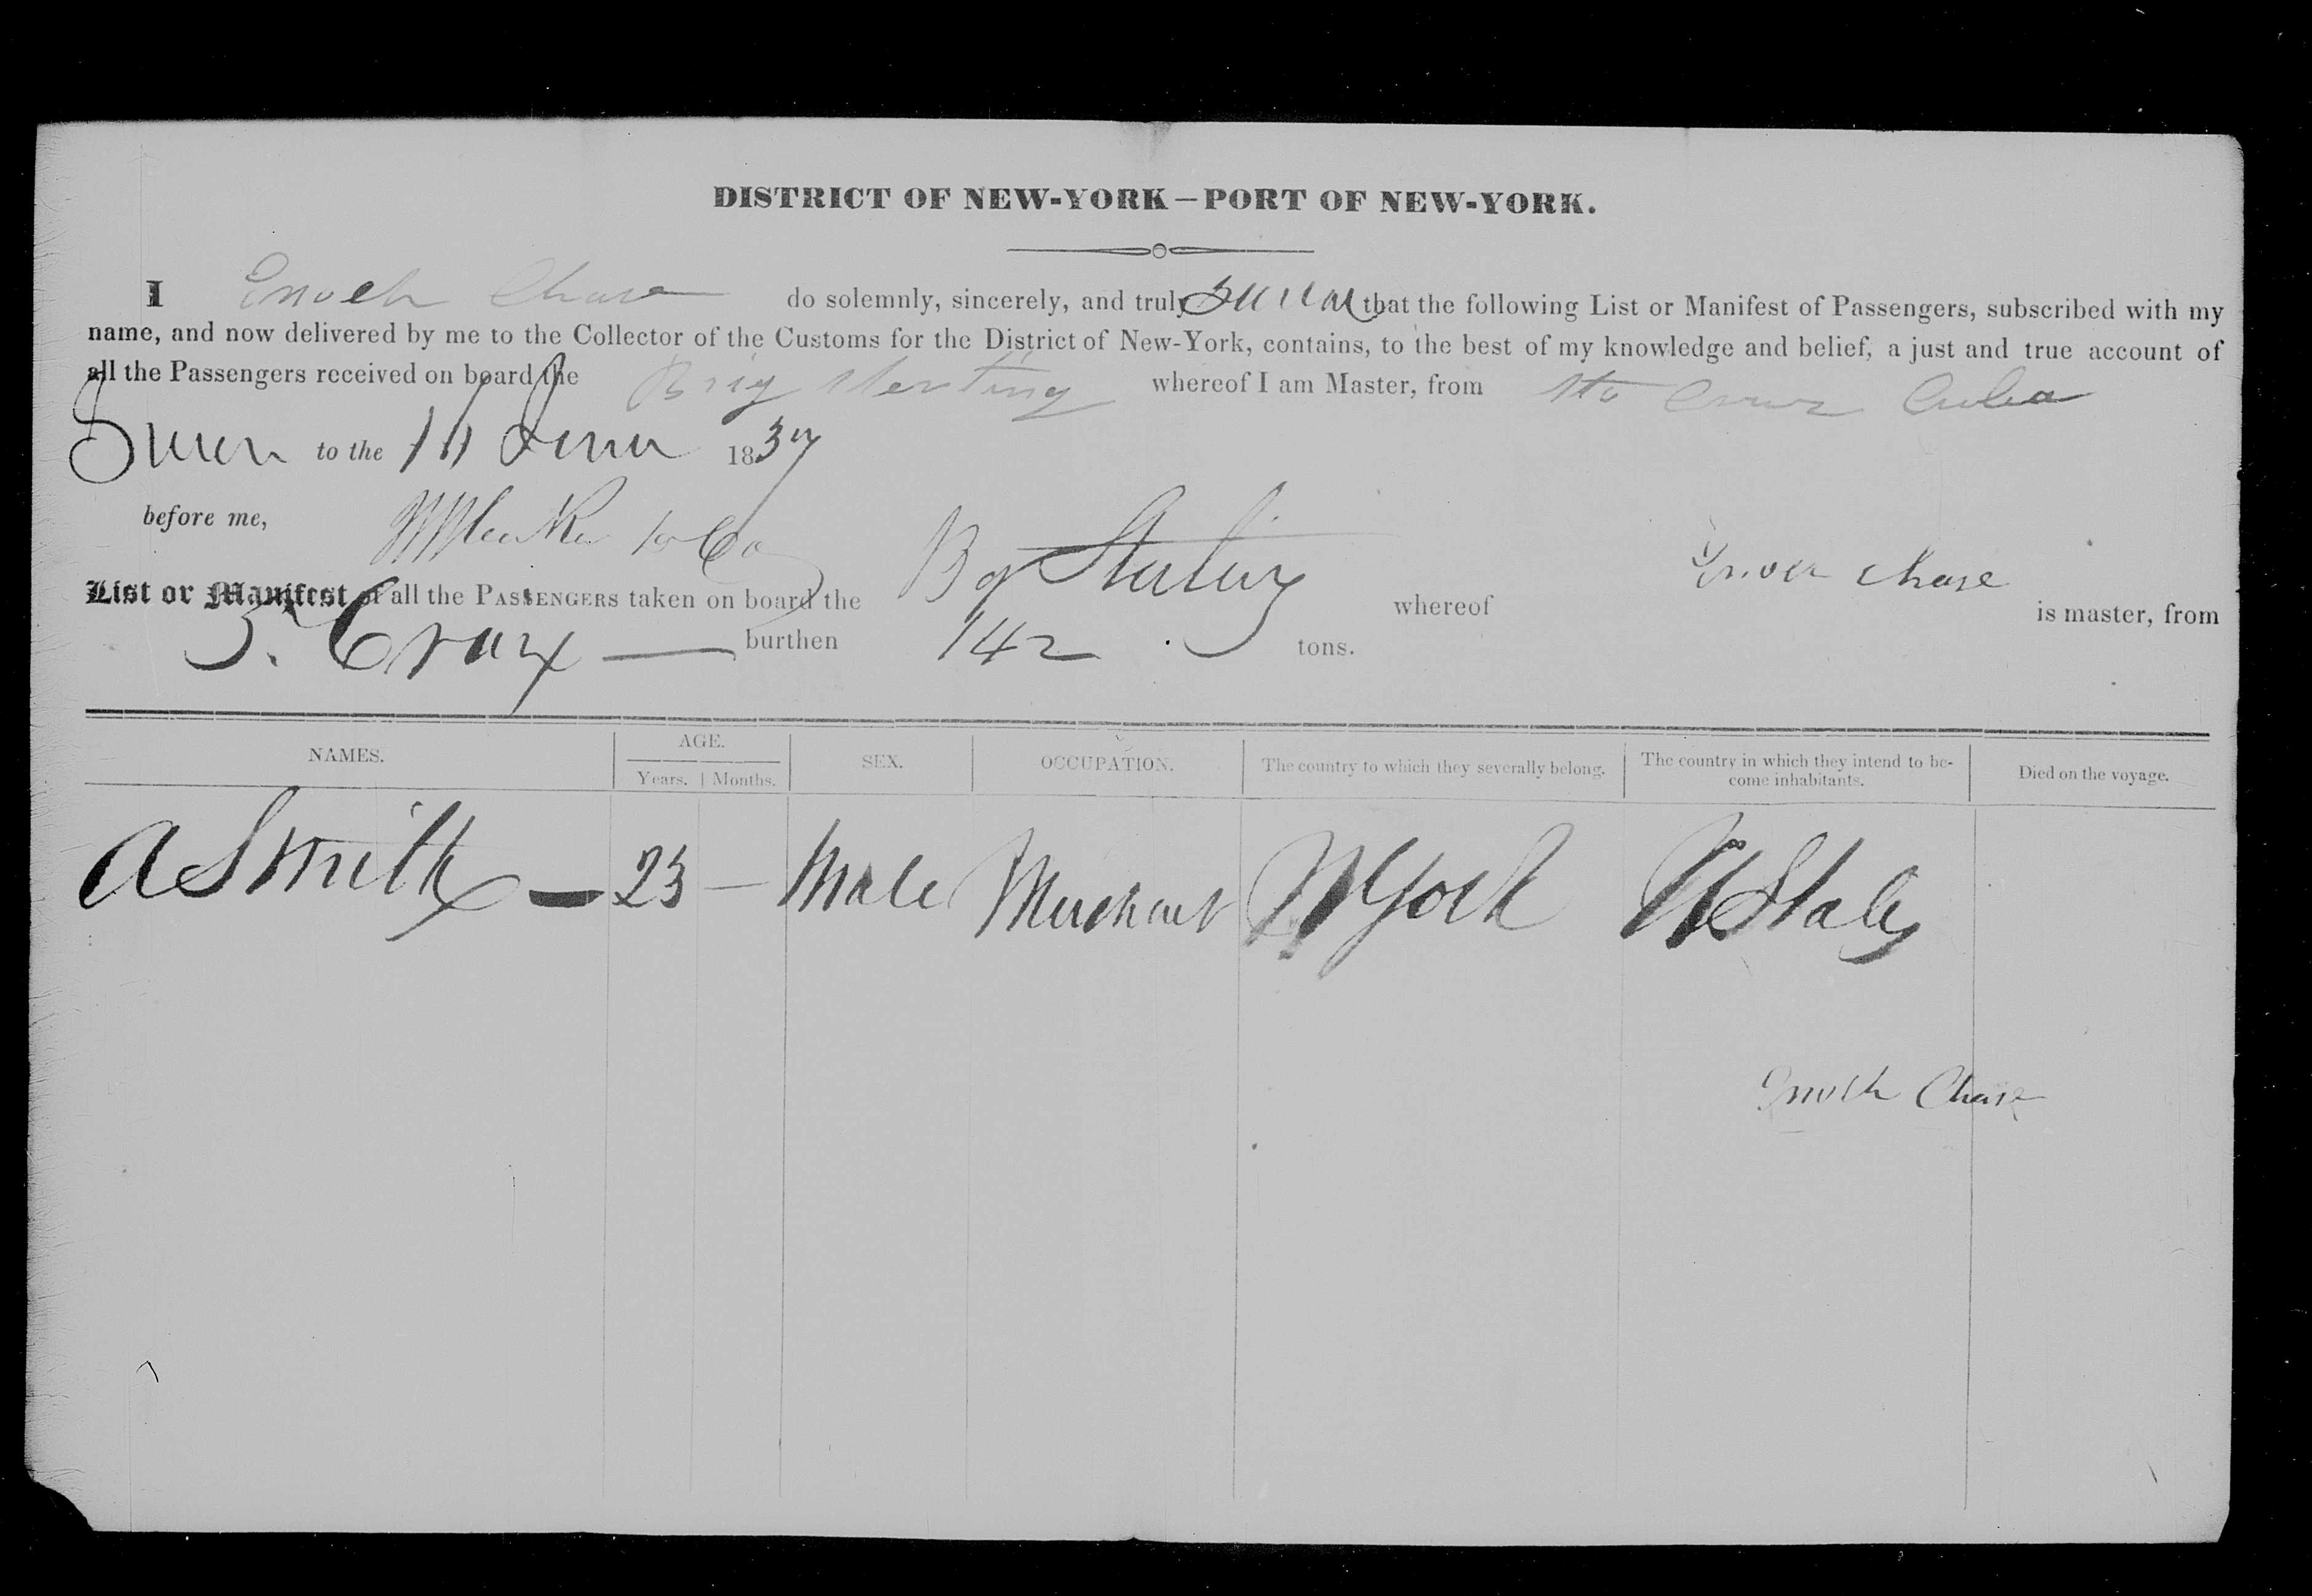 DISTRICT OF NEW-YORK—PORT OF NEW-YORK.
I Enoch Chase do solemnly, sincerely, and truly swear that the following List or Manifest of Passengers, subscribed with my
name, and now delivered by me to the Collector of the Customs for the District of New-York, contains, to the best of my knowledge and belief, a just and true account of
all the Passengers received on board the Brig Sterling whereof I am Master, from Sta Cruz Cuba
Sworn to the June 1837
before me,
Enoch Chase
List or Manifest of all the PASSENGERS taken on board the Bg Sterling whereof is master, from
St. Cruz — burthen 142 tons.
NAMES. AGE. SEX. OCCUPATION. The country to which they severally belong. The country in which they intend to be-
come inhabitants. Died on the voyage.
Years. Months.
A Smith — 23 — Male Merchant N York U States
Enoch Chase